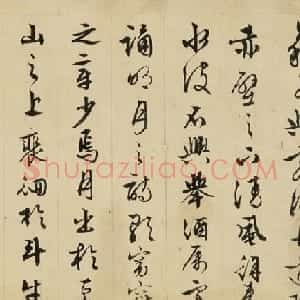 赤壁之下清風徐
水波不興舉酒屬客
誦明月之詩歌窈窕
之章少焉月出於東
山之上徘徊於斗牛
Shufaziliao.COM